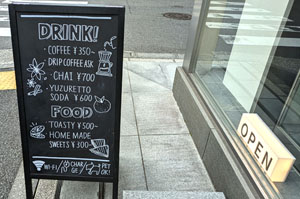 DRINK!
COFFEE ¥350~
DRIP COFFEE ASK
CHAI ¥700
YUZURETTO
SODA ¥600
FOOD
TOASTY ¥500~
HOME MADE
SWEETS ¥300~
WI-FI/
PET
OK!
OPEN